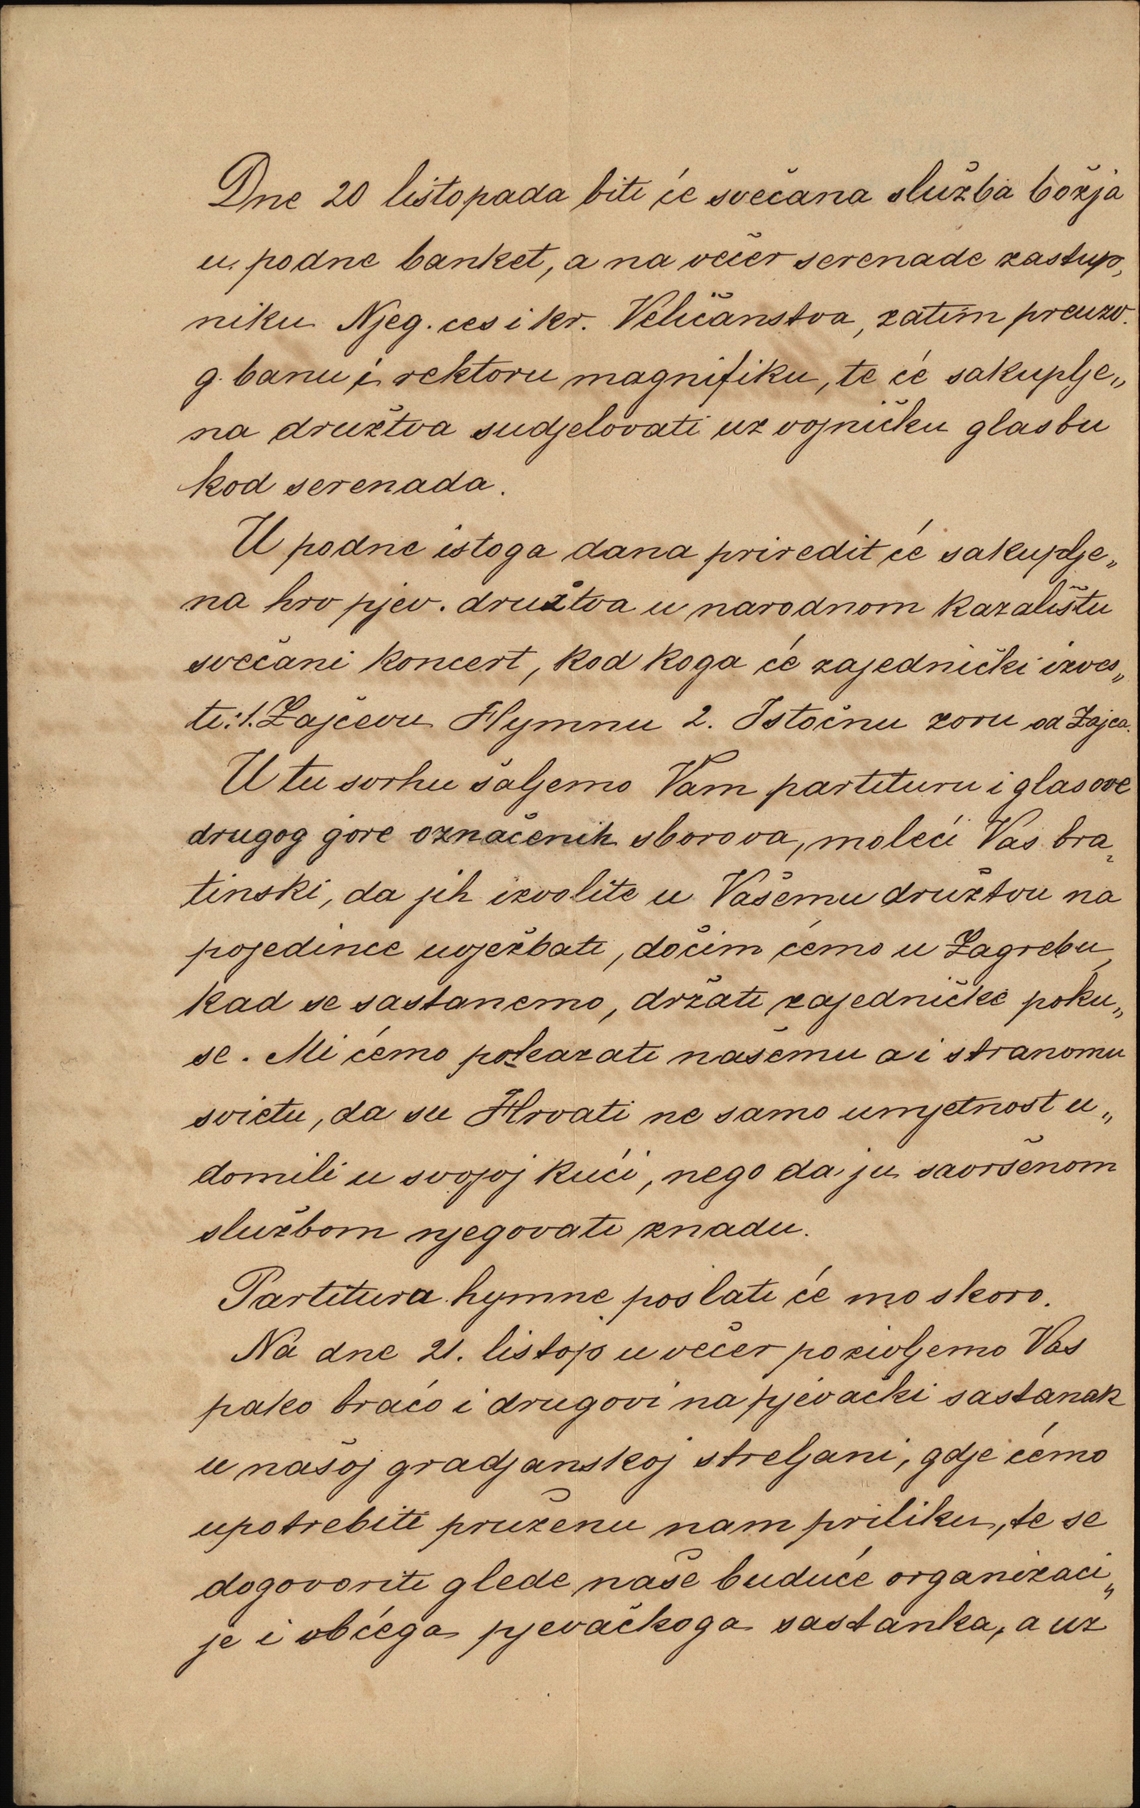 Dne 20 listopada biti će svečana služba božja
u podne banket, a na večer serenade zastup„
niku Njeg. ces i kr. Veličanstva, zatim preuzv.
g. banu i rektoru magnifiku, te će sakuplje„
na družtva sudjelovati uz vojničku glasbu
kod serenada.
U podne istoga dana priredit će sakuplje„
na hrv pjev. družtva u narodnom kazalištu
svečani koncert, kod koga će zajednički izves„
ti: 1. Zajčevu Hymnu 2. Istočnu zoru od Zajca.
U tu svrhu šaljemo Vam partituru i glasove
drugog gore označenih sborova, moleći Vas bra„
tinski, da jih izvolite u Vašemu družtvu na
pojedince uvježbati, dočim ćemo u Zagrebu,
kad se sastanemo, držati zajedničke poku„
se. Mi ćemo pokazati našemu a i stranomu
svietu, da su Hrvati ne samo umjetnost u„
domili u svojoj kući, nego da ju savršenom
službom njegovati znadu.
Partitura hymne poslati će mo skoro.
Na dne 21. listop u večer pozivljemo Vas
pako braćo i drugovi na pjevački sastanak
u našoj gradjanskoj streljani, gdje ćemo
upotrebiti pruženu nam priliku, te se
dogovoriti glede naše buduće organizaci„
je i obćega pjevačkoga sastanka, a uz